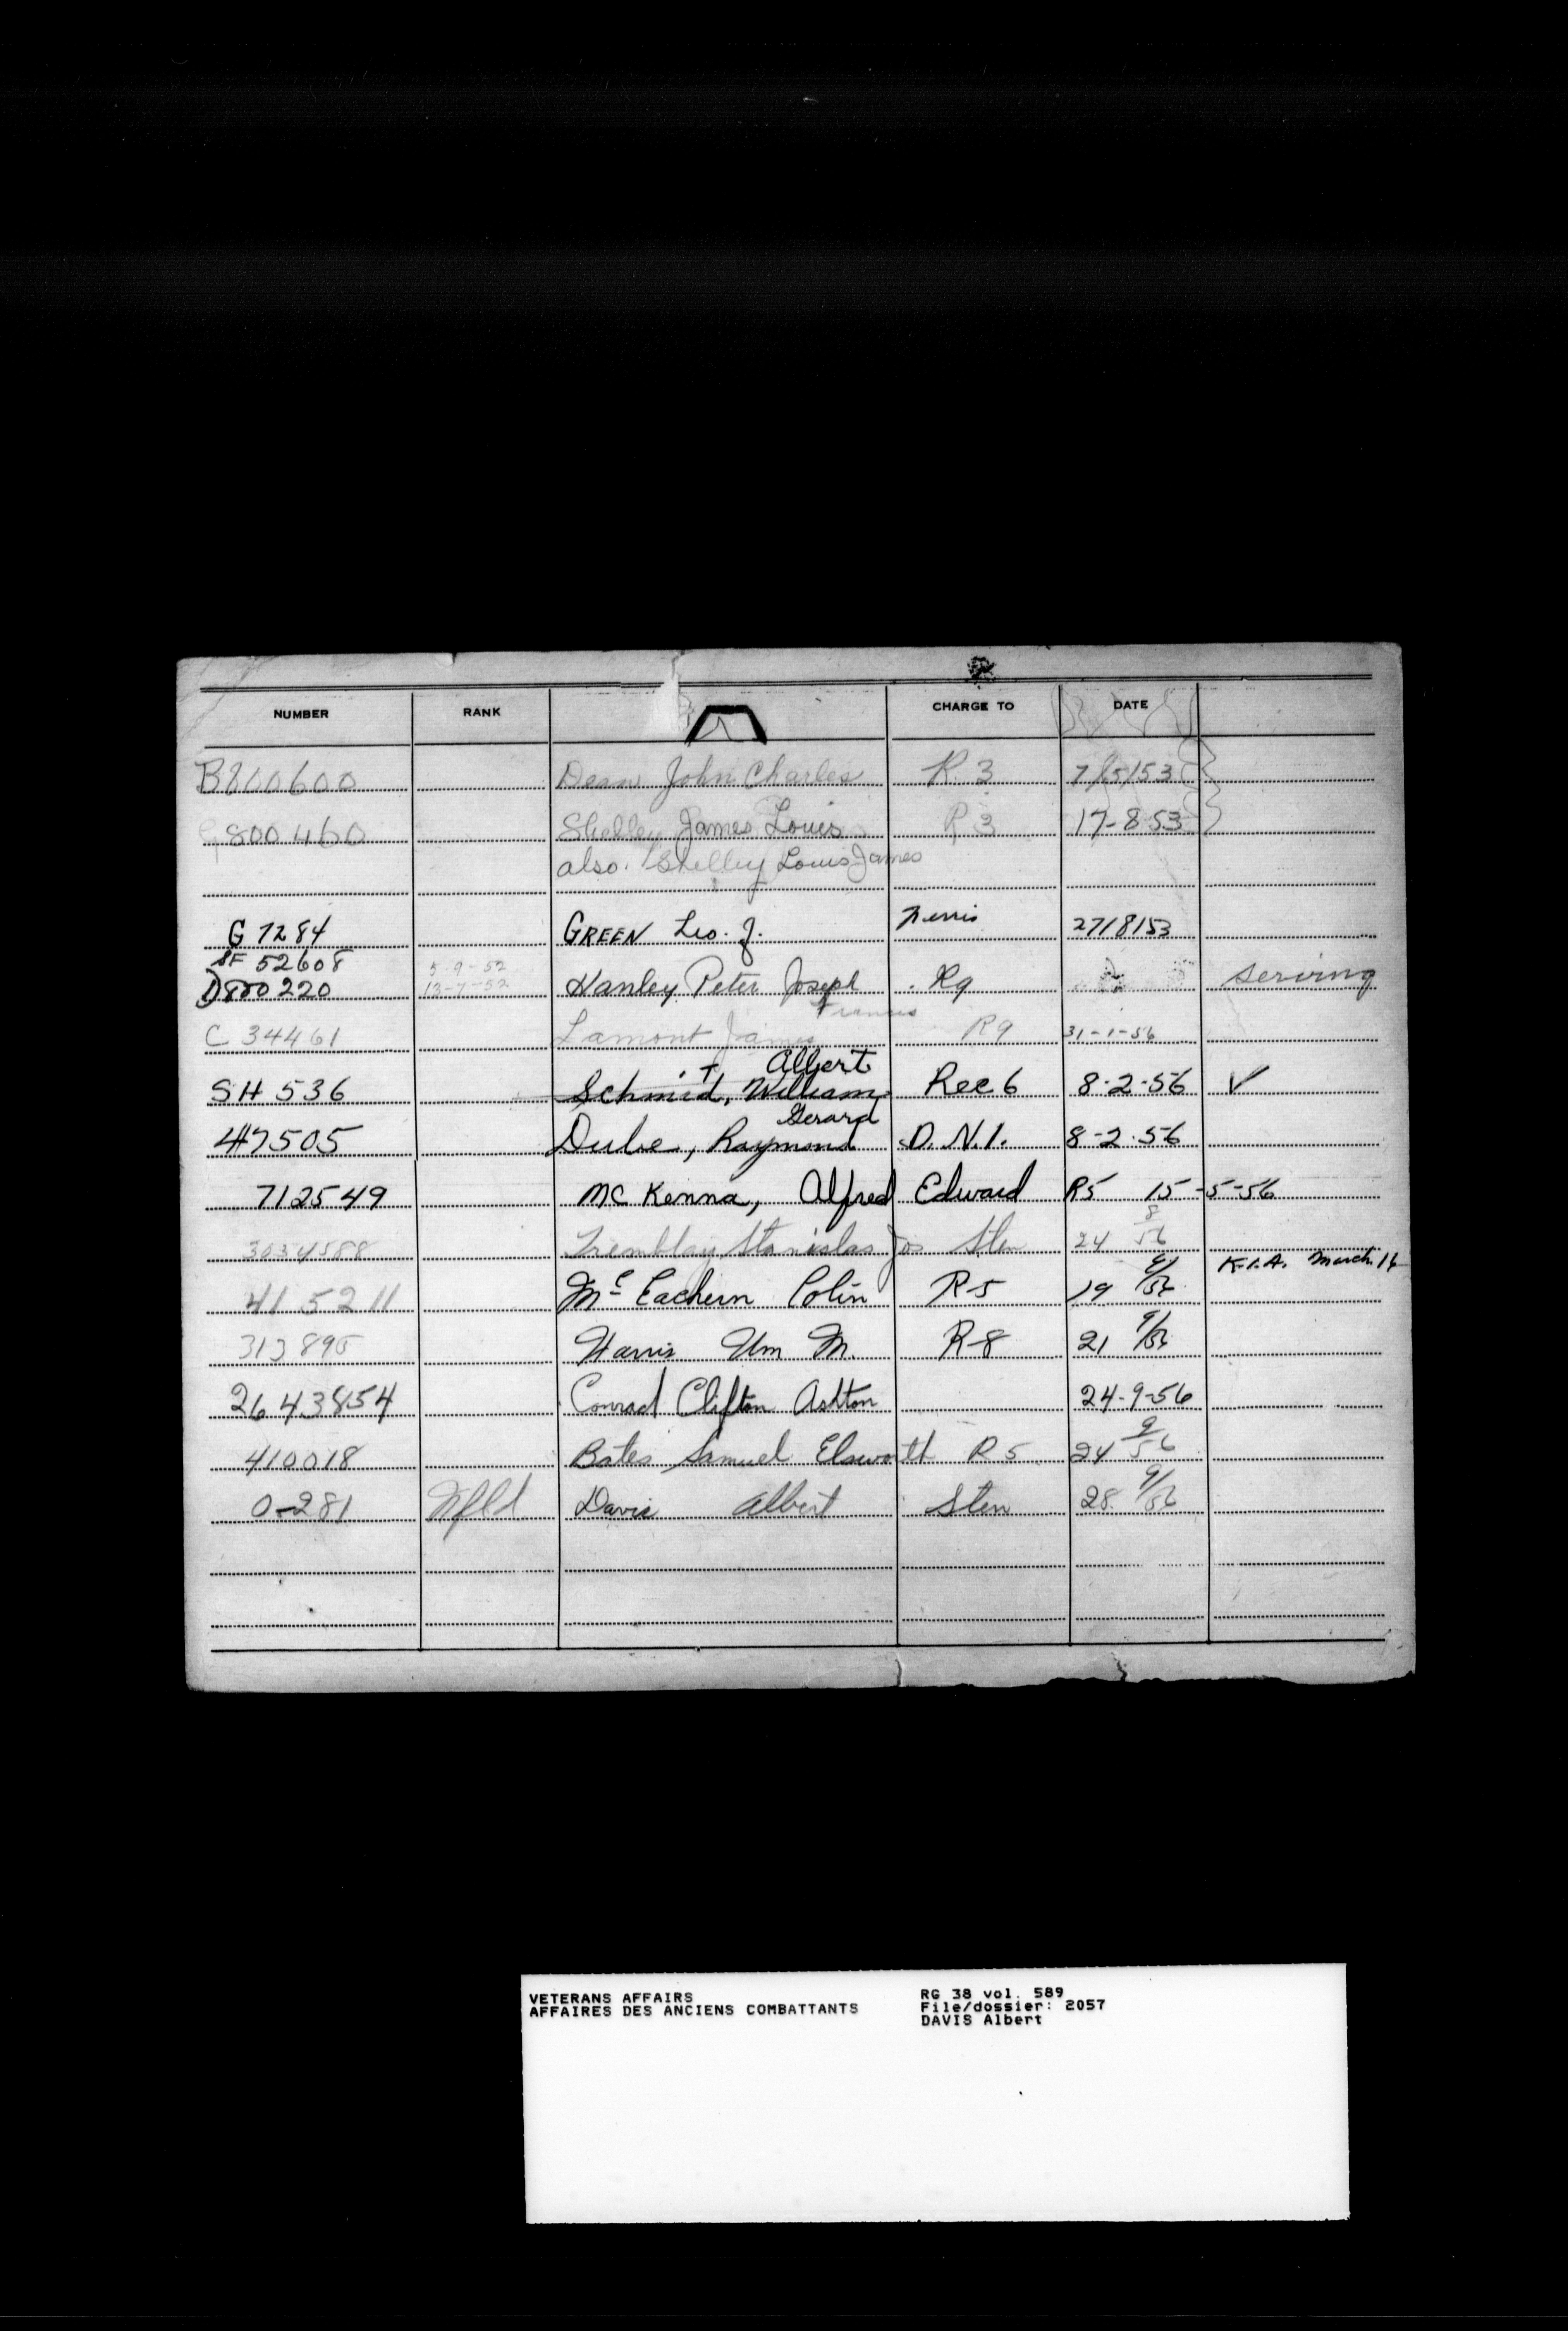 NUMBER RANK CHARGE TO DATE
B800600 John Charles R. 3 7/5/53
800460 Shelley James Louis R 3 17-8-53
also Shelley Louis James
G 7284 GREEN Leo. J. 27/8/53
SF 52608 5-9-52
D800220 13-7-52 Hanley Peter Joseph R9 serving
Francis
C 34461 Lamont James R9 31-1-56
Albert
SH 536 Schmidt, William Rec 6 8-2-56 V
Gerard
47505 Dube, Raymond D.N.I. 8-2-56
712549 Mc Kenna, Alfred Edward R5 15-5-56
3034588 Tremblay Stanislas Jos Sten 24 8/56
K.I.A. March 16
415211 McEachern Colin R-5 19 9/56
Harris Wm M. R-8 21 9/56
2643854 Conrad Clifton Ashton 24-9-56
410018 Bates Samuel Elsworth R 5 24 9/56
0-281 Nfld Davis Albert Sten 28 9/56
VETERANS AFFAIRS
AFFAIRES DES ANCIENS COMBATTANTS
RG 38 vol. 589
File/dossier: 2057
DAVIS Albert